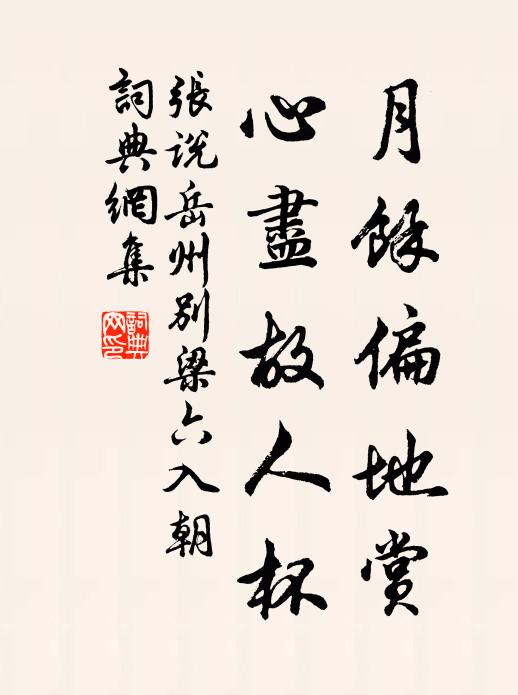 月餘偏地賞
心盡故人杯
張说岳州别梁六入朝
詞典網集
詞典
网印